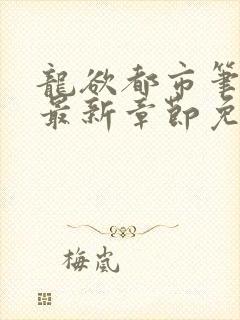 龍欲都市筆
最新章節免
梅嵐